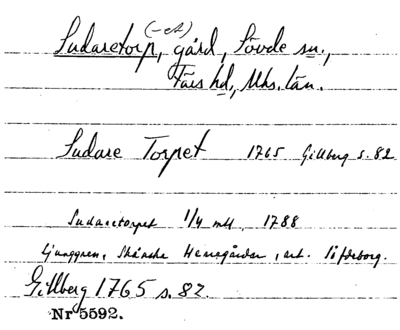 (-et)
Sudaretorp, gård, Sövde sn.,
Färs hd, Mhs. län.
Sudare Torpet 1765 Gillberg s. 82
Sudaretorpet 1/4 mtl 1788
Ljunggren, Skånska Herregårdar, art. Söfdeborg.
Gillberg 1765 s. 82.
Nr 5592.